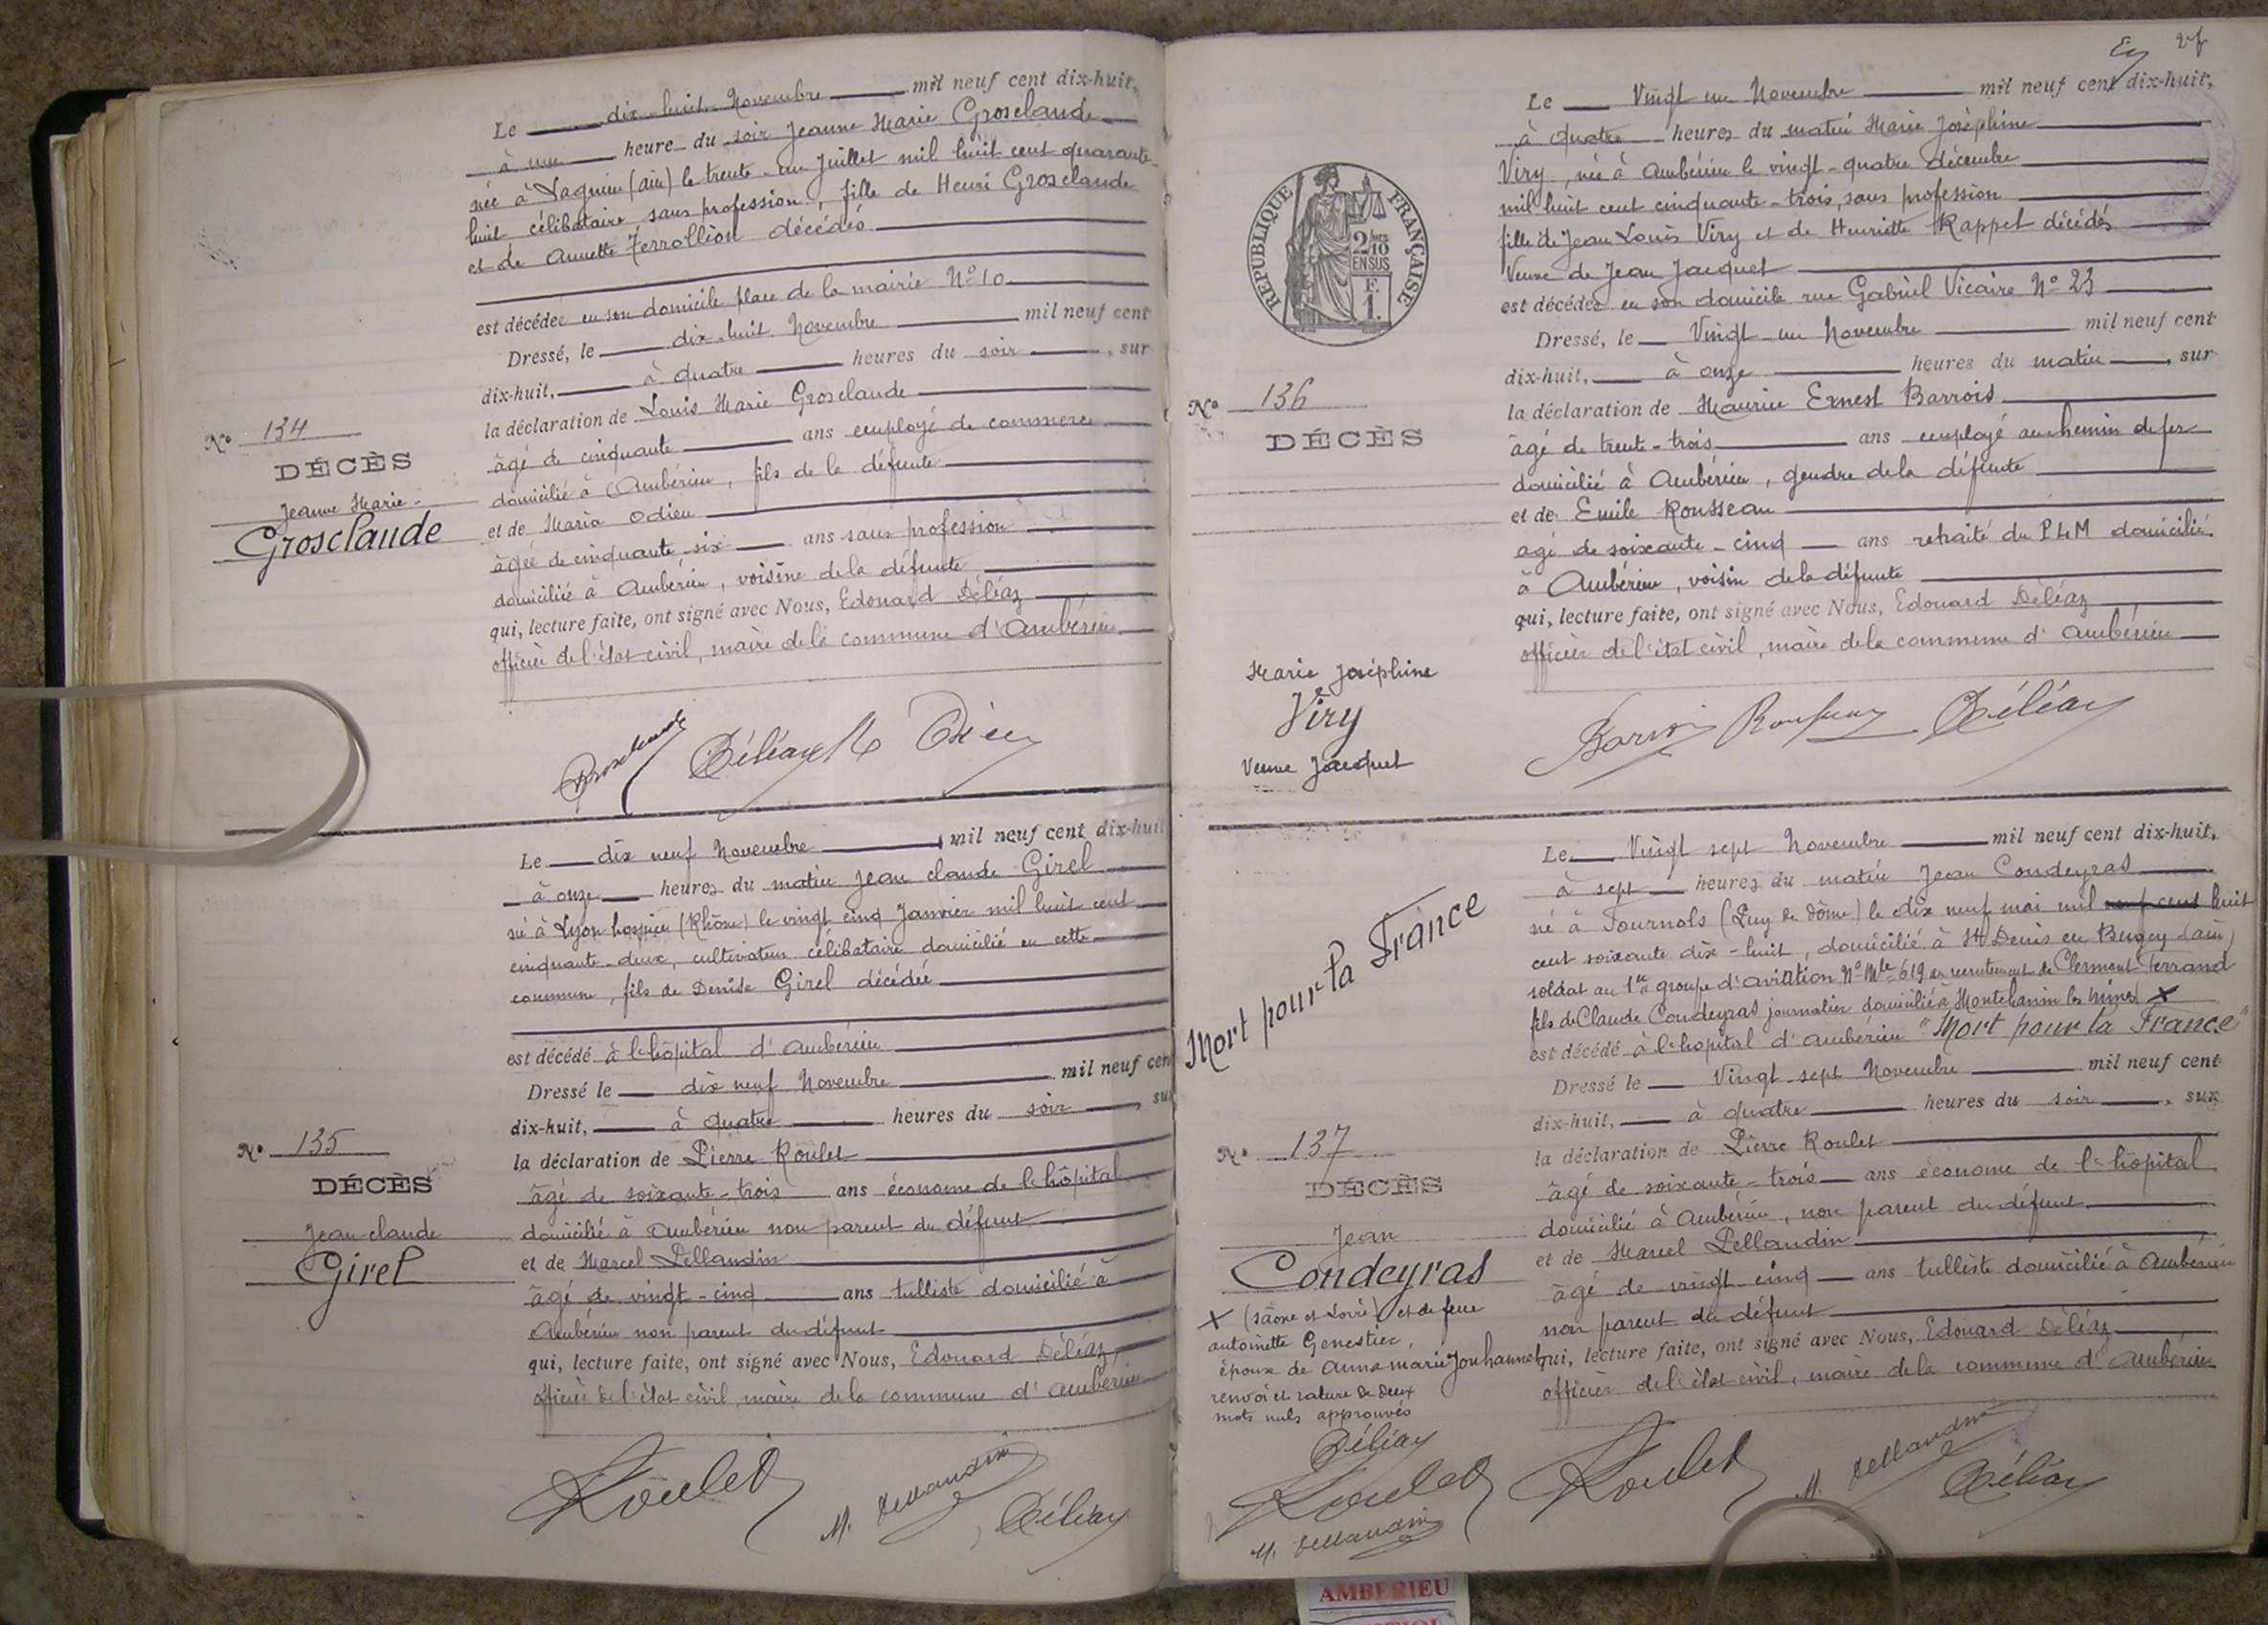 Le dix-huit Novembre mil neuf cent dix-huit,
à une heure du soir Jeanne Marie Grosclaude
née à Lagnieu (ain) le trente-un Juillet mil huit cent quarante-
huit célibataire, sans profession, fille de Henri Grosclaude
et de Annette Ferrollion décédés
est décédée en son domicile place de la mairie Nº 10
Dressé, le dix-huit Novembre mil neuf cent
dix-huit, à quatre heures du soir, sur
la déclaration de Louis Marie Grosclaude
âgé de cinquante ans employé de commerce
domicilié à Ambérieu, fils de la défunte
et de Maria Odieu
âgée de cinquante six ans sans profession
domiciliée à Ambérieu, voisine de la défunte
qui, lecture faite, ont signé avec Nous, Edouard Déléaz
officier de l'état civil, maire de la commune d'Ambérieu
Nº 134
DÉCÈS
Jeanne Marie
Grosclaude
Grosclaude Déléaz M Odieu
Le dix neuf Novembre mil neuf cent dix-huit
à onze heures du matin Jean Claude Girel
né à Lyon hospice (Rhône) le vingt cinq Janvier mil huit cent
cinquante-deux, cultivateur célibataire domicilié en cette
commune, fils de Denise Girel décédée
est décédé à l'hôpital d'ambérieu
Dressé le dix neuf Novembre mil neuf cent
dix-huit, à quatre heures du soir, sur
la déclaration de Pierre Roulet
âgé de soixante-trois ans économe de l'hôpital
domicilié à Ambérieu non parent du défunt
et de Marcel Dellandin
âgé de vingt-cinq ans tulliste domicilié à
Ambérieu non parent du défunt
qui, lecture faite, ont signé avec Nous, Edouard Déléaz,
officier de l'état civil, maire de la commune d'Ambérieu
Nº 135
DÉCÈS
Jean claude
Girel
Roulet M. Dellandin Déléaz
En 27
Le Vingt un Novembre mil neuf cent dix-huit,
à quatre heures du matin Marie Joséphine
Viry, née à Ambérieu le vingt-quatre décembre
mil huit cent cinquante-trois, sans profession
fille de Jean Louis Viry et de Henriette Rappet décédés
Veuve de Jean Jacquet
est décédée en son domicile rue Gabriel Vicaire Nº 23
Dressé, le Vingt un Novembre mil neuf cent
dix-huit, à onze heures du matin, sur
la déclaration de Maurice Ernest Barrois
âgé de trente-trois ans employé au chemin de fer
domicilié à Ambérieu, gendre de la défunte
et de Emile Rousseau
âgé de soixante-cinq ans retraité du PLM domicilié
à Ambérieu, voisin de la défunte
qui, lecture faite, ont signé avec Nous, Edouard Déléaz
officier de l'état civil, maire de la commune d'Ambérieu
RÉPUBLIQUE FRANÇAISE
2/10
EN SUS
F.
1.
Nº 136
DÉCÈS
Marie Joséphine
Viry
Veuve Jacquet
Barrois Rousseau Déléaz
Le Vingt sept Novembre mil neuf cent dix-huit,
à sept heures du matin Jean Condeyras
né à Tournols (Puy de dôme) le dix neuf mai mil neuf cent huit
cent soixante dix-huit, domicilié à St Denis en Bugey (ain)
soldat au 1er groupe d'aviation Nº Mle 619 au recrutement de Clermont-Ferrand
fils de Claude Condeyras journalier domicilié à Montchanin les mines X
est décédé à l'hopital d'ambérieu "Mort pour la France"
Dressé le Vingt-sept Novembre mil neuf cent
dix-huit, à quatre heures du soir, sur
la déclaration de Pierre Roulet
âgé de soixante-trois ans économe de l'hôpital
domicilié à Ambérieu, non parent du défunt
et de Marcel Dellandin
âgé de vingt cinq ans tulliste domicilié à Ambérieu
non parent du défunt
qui, lecture faite, ont signé avec Nous, Edouard Déléaz
officier de l'état civil, maire de la commune d'Ambérieu
Mort pour la France
Nº 137
DÉCÈS
Jean
Condeyras
X (Sâone et Loire) et de feue
antoinette Genestier,
époux de Anna marie Jouhannet
renvoi et rature de deux
mots nuls approuvés
Déléaz
Roulet
M. Dellandin
Roulet M. Dellandin Déléaz
AMBERIEU